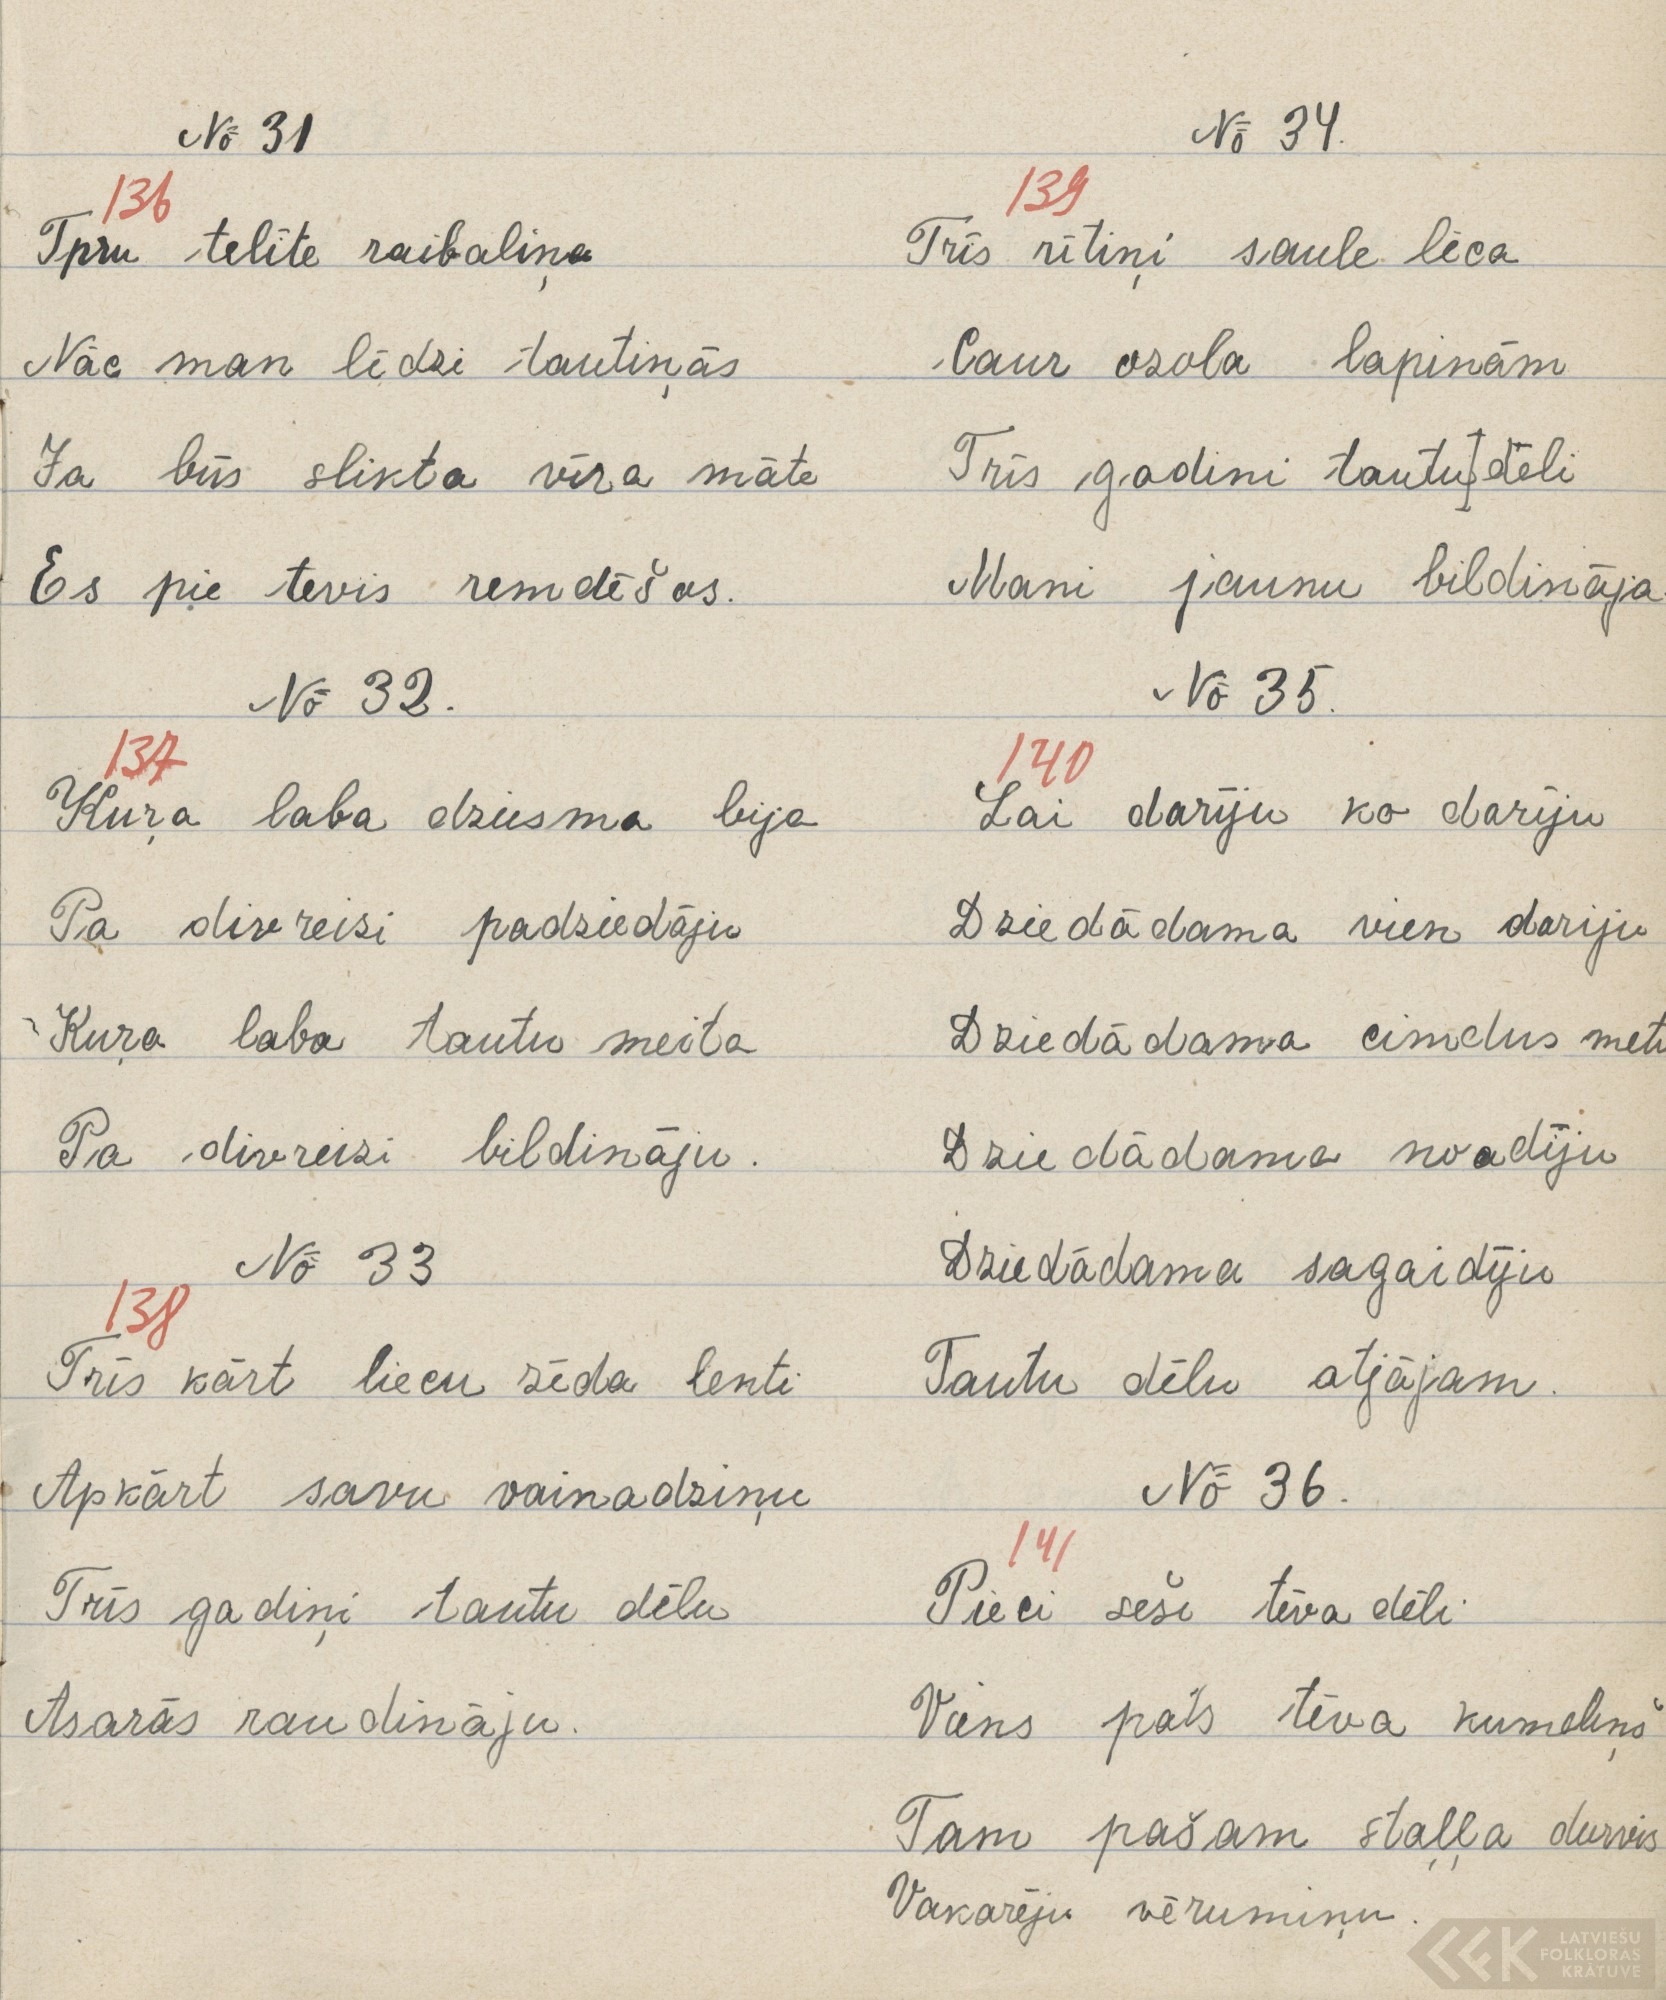 No 31
136
Tpru telīte raibaliņa
Nāc man līdzi tautiņās
Ja būs slikta vīra māte
Es pie tevis remdēšos.
No 32.
137
Kuŗa laba dziesma bija
Pa divreizi padziedāju
Kuŗa laba tautu meita
Pa divreizi bildināju.
No 33
138
Trīs kārt liecu zēda lenti
Apkārt savu vainadziņu
Trīs gadiņi tautu dēlu
Asarās raudināju.
No 34.
139
Trīs rītiņi saule lēca
Caur ozola lapinām
Trīs gadini tautu dēli
Mani jaunu bildināja
No 35.
140
Lai darīju ko darīju
Dziedādama vien darīju
Dziedādama cimdus metu
Dziedādama noadīju
Dziedādama sagaidīju
Tautu dēlu atjājam.
No 36.
141
Pieci seši tēva dēli
Viens pats tēva kumeliņš
Tam pašam staļļa durvis
Vakarēju vērumiņu.
LATVIEŠU
FOLKLORAS
KRĀTUVE